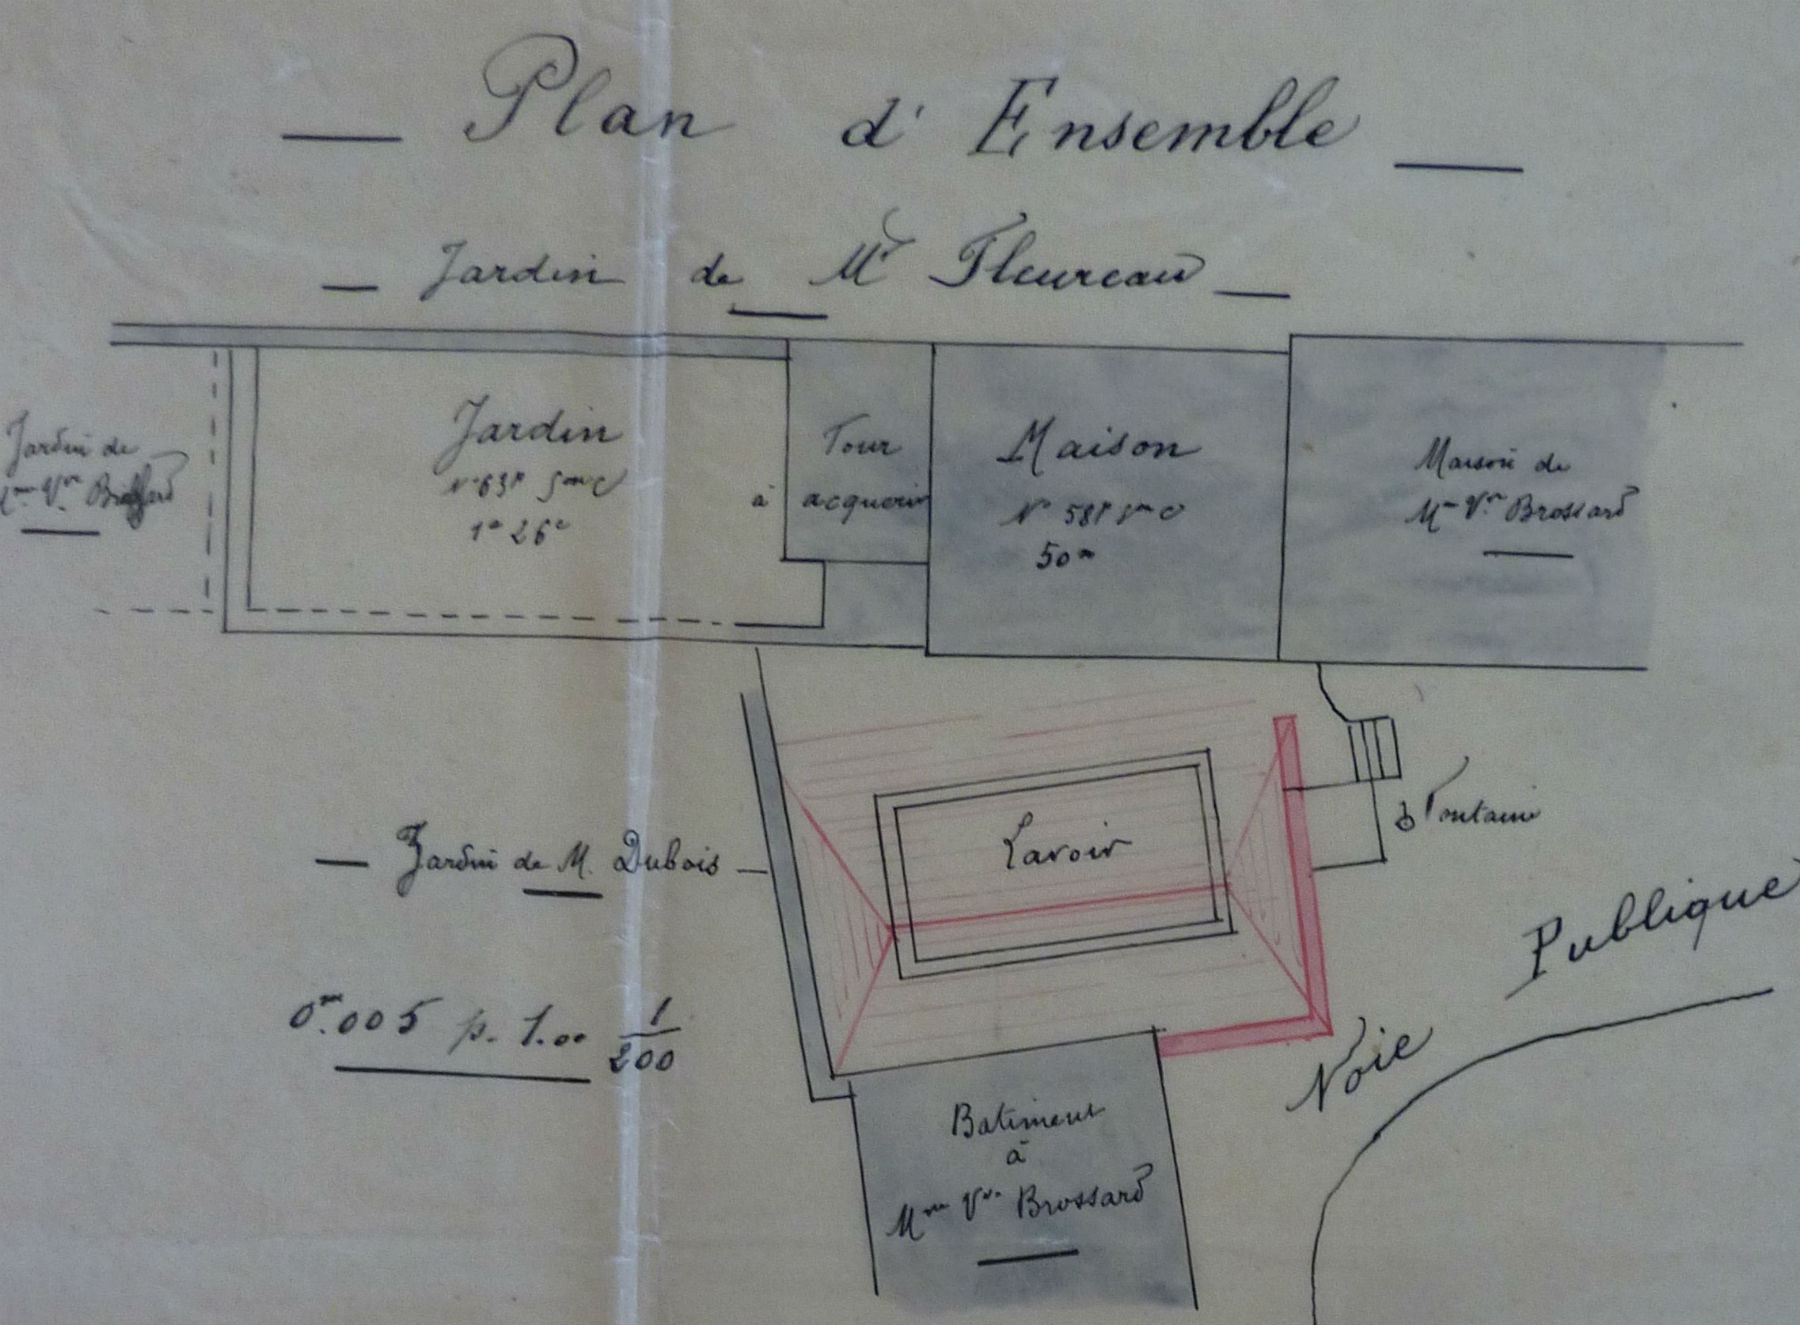 Plan d'Ensemble
Jardin de Mr Fleureau
Jardin de
Mme Vve Brossard
Jardin
N° 63P Son C
1a 26c
Tour
à acquerir
Maison
N° 58P Son C
50m
Maison de
Mme Vve Brossard
Lavoir
Fontaine
Jardin de M. Dubois
Voie Publique
0m.005 p. 1.00 1/200
Batiment
à
Mme Vve Brossard